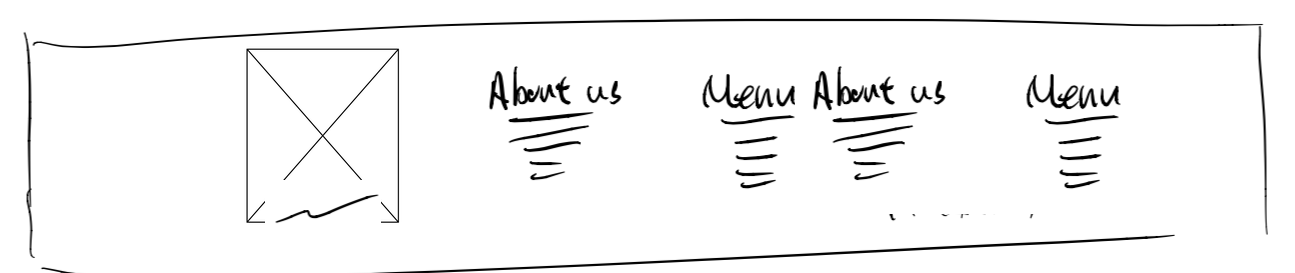 About us Menu About us Menu